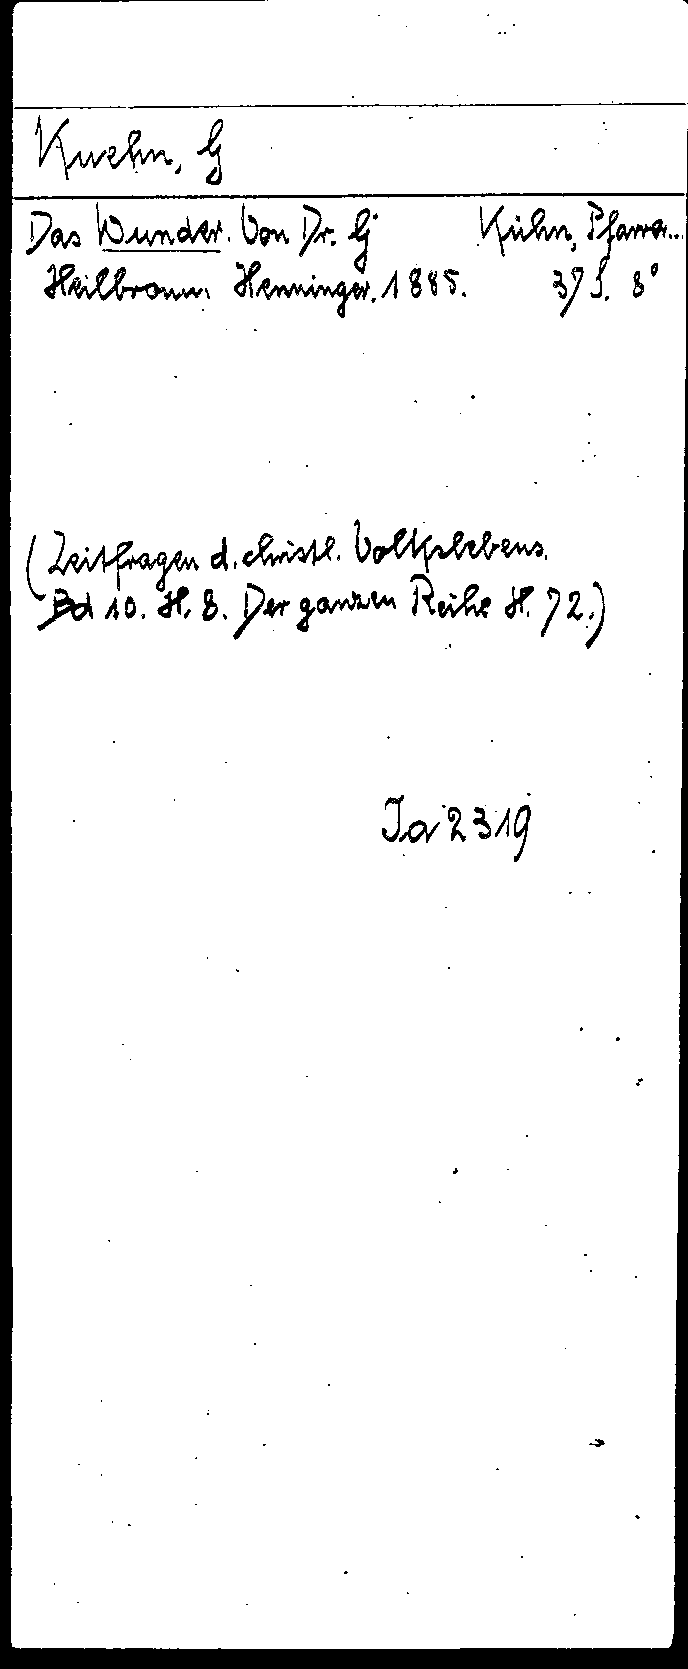 Kuehn, G
Das Wunder. Von Dr. G Kühn, Pfarrer..
Heilbronn. Henninger. 1885. 37 S. 8°
(Zeitfragen d. christl. Volkslebens.
Bd 10. H. 8. Der ganzen Reihe H. 72.)
Ia 2319